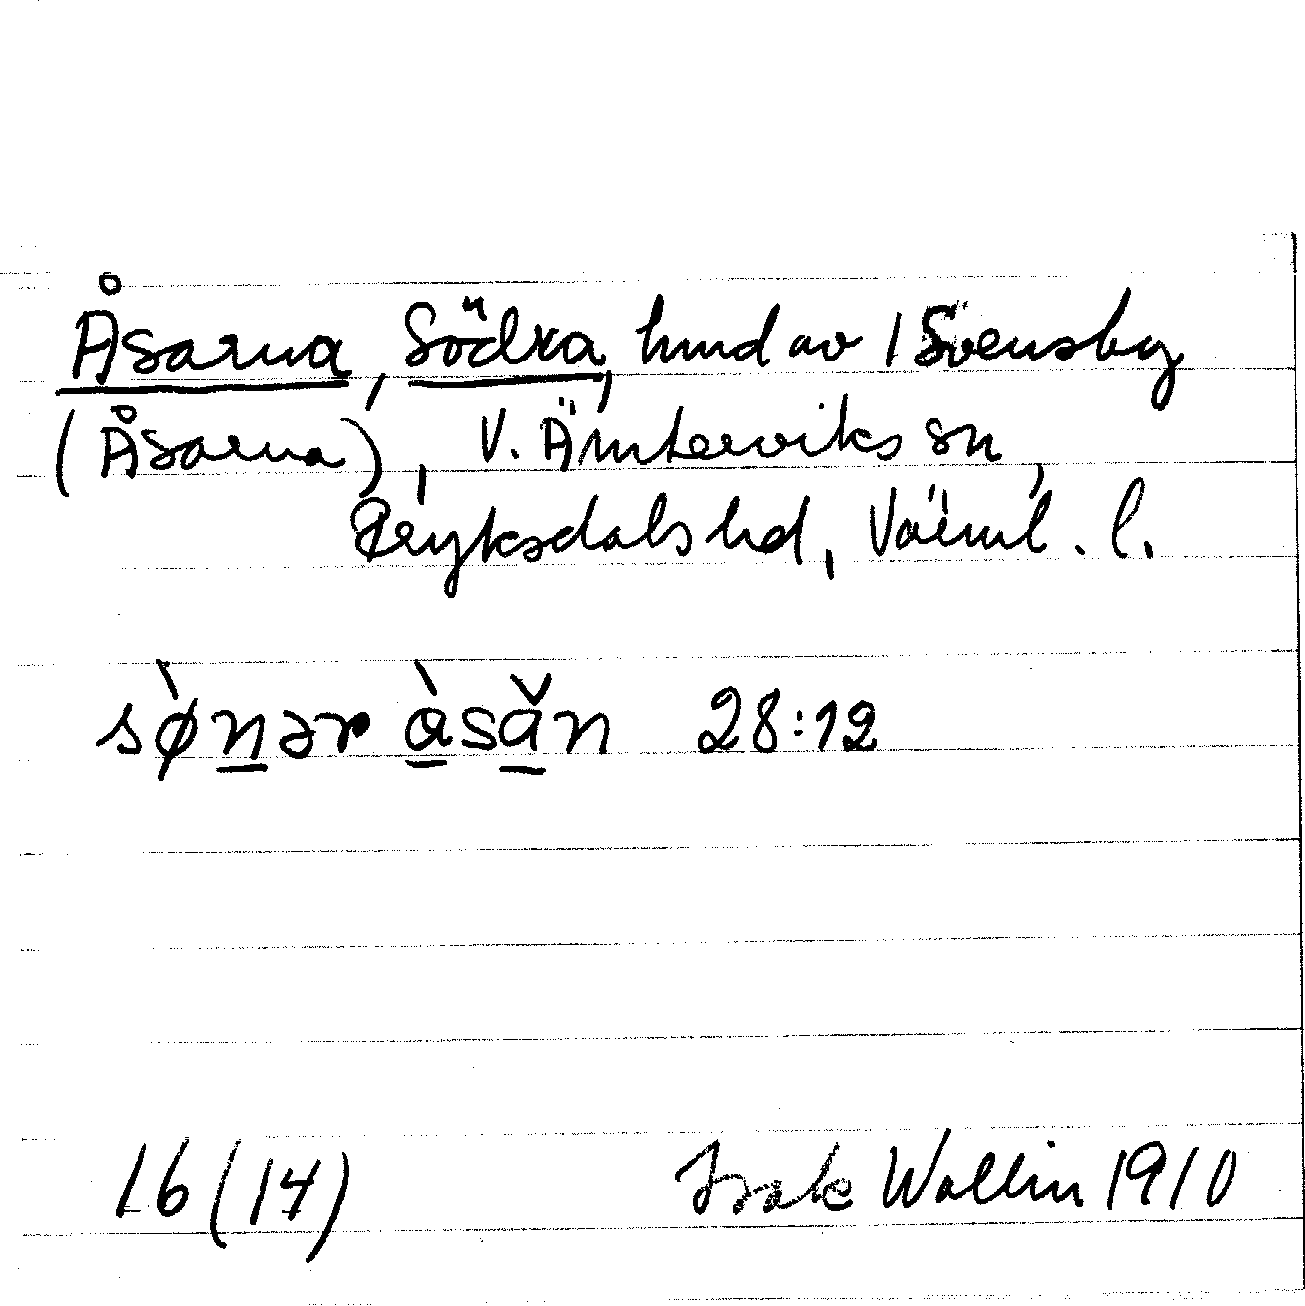 Åsarna, Södra, hmd av 1 Svensby
(Åsarna), V. Ämterviks sn,
Fryksdals hd, Värml. l.
sø̀n̲ər à̲sǎ̲n 28:12
16 (14) Isak Wallin 1910